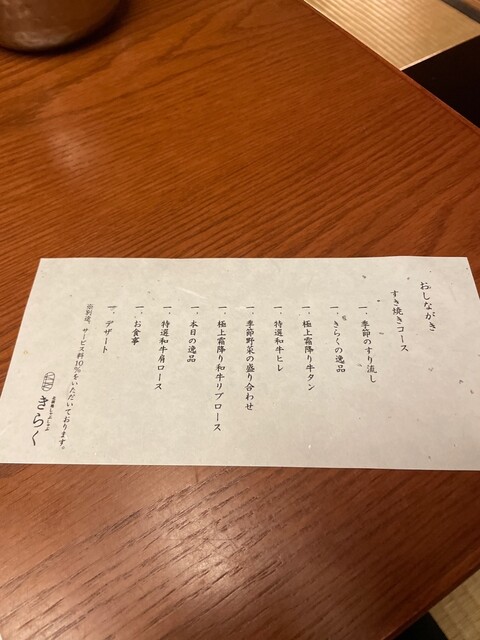 おしながき
すき焼きコース
一、季節のすり流し
一、きらくの逸品
一、極上霜降り牛タン
一、特選和牛ヒレ
一、季節野菜の盛り合わせ
一、極上霜降り和牛リブロース
一、本日の逸品
一、特選和牛肩ロース
一、お食事
一、デザート
※別途、サービス料10%をいただいております。
しゃぶしゃぶ
きらく